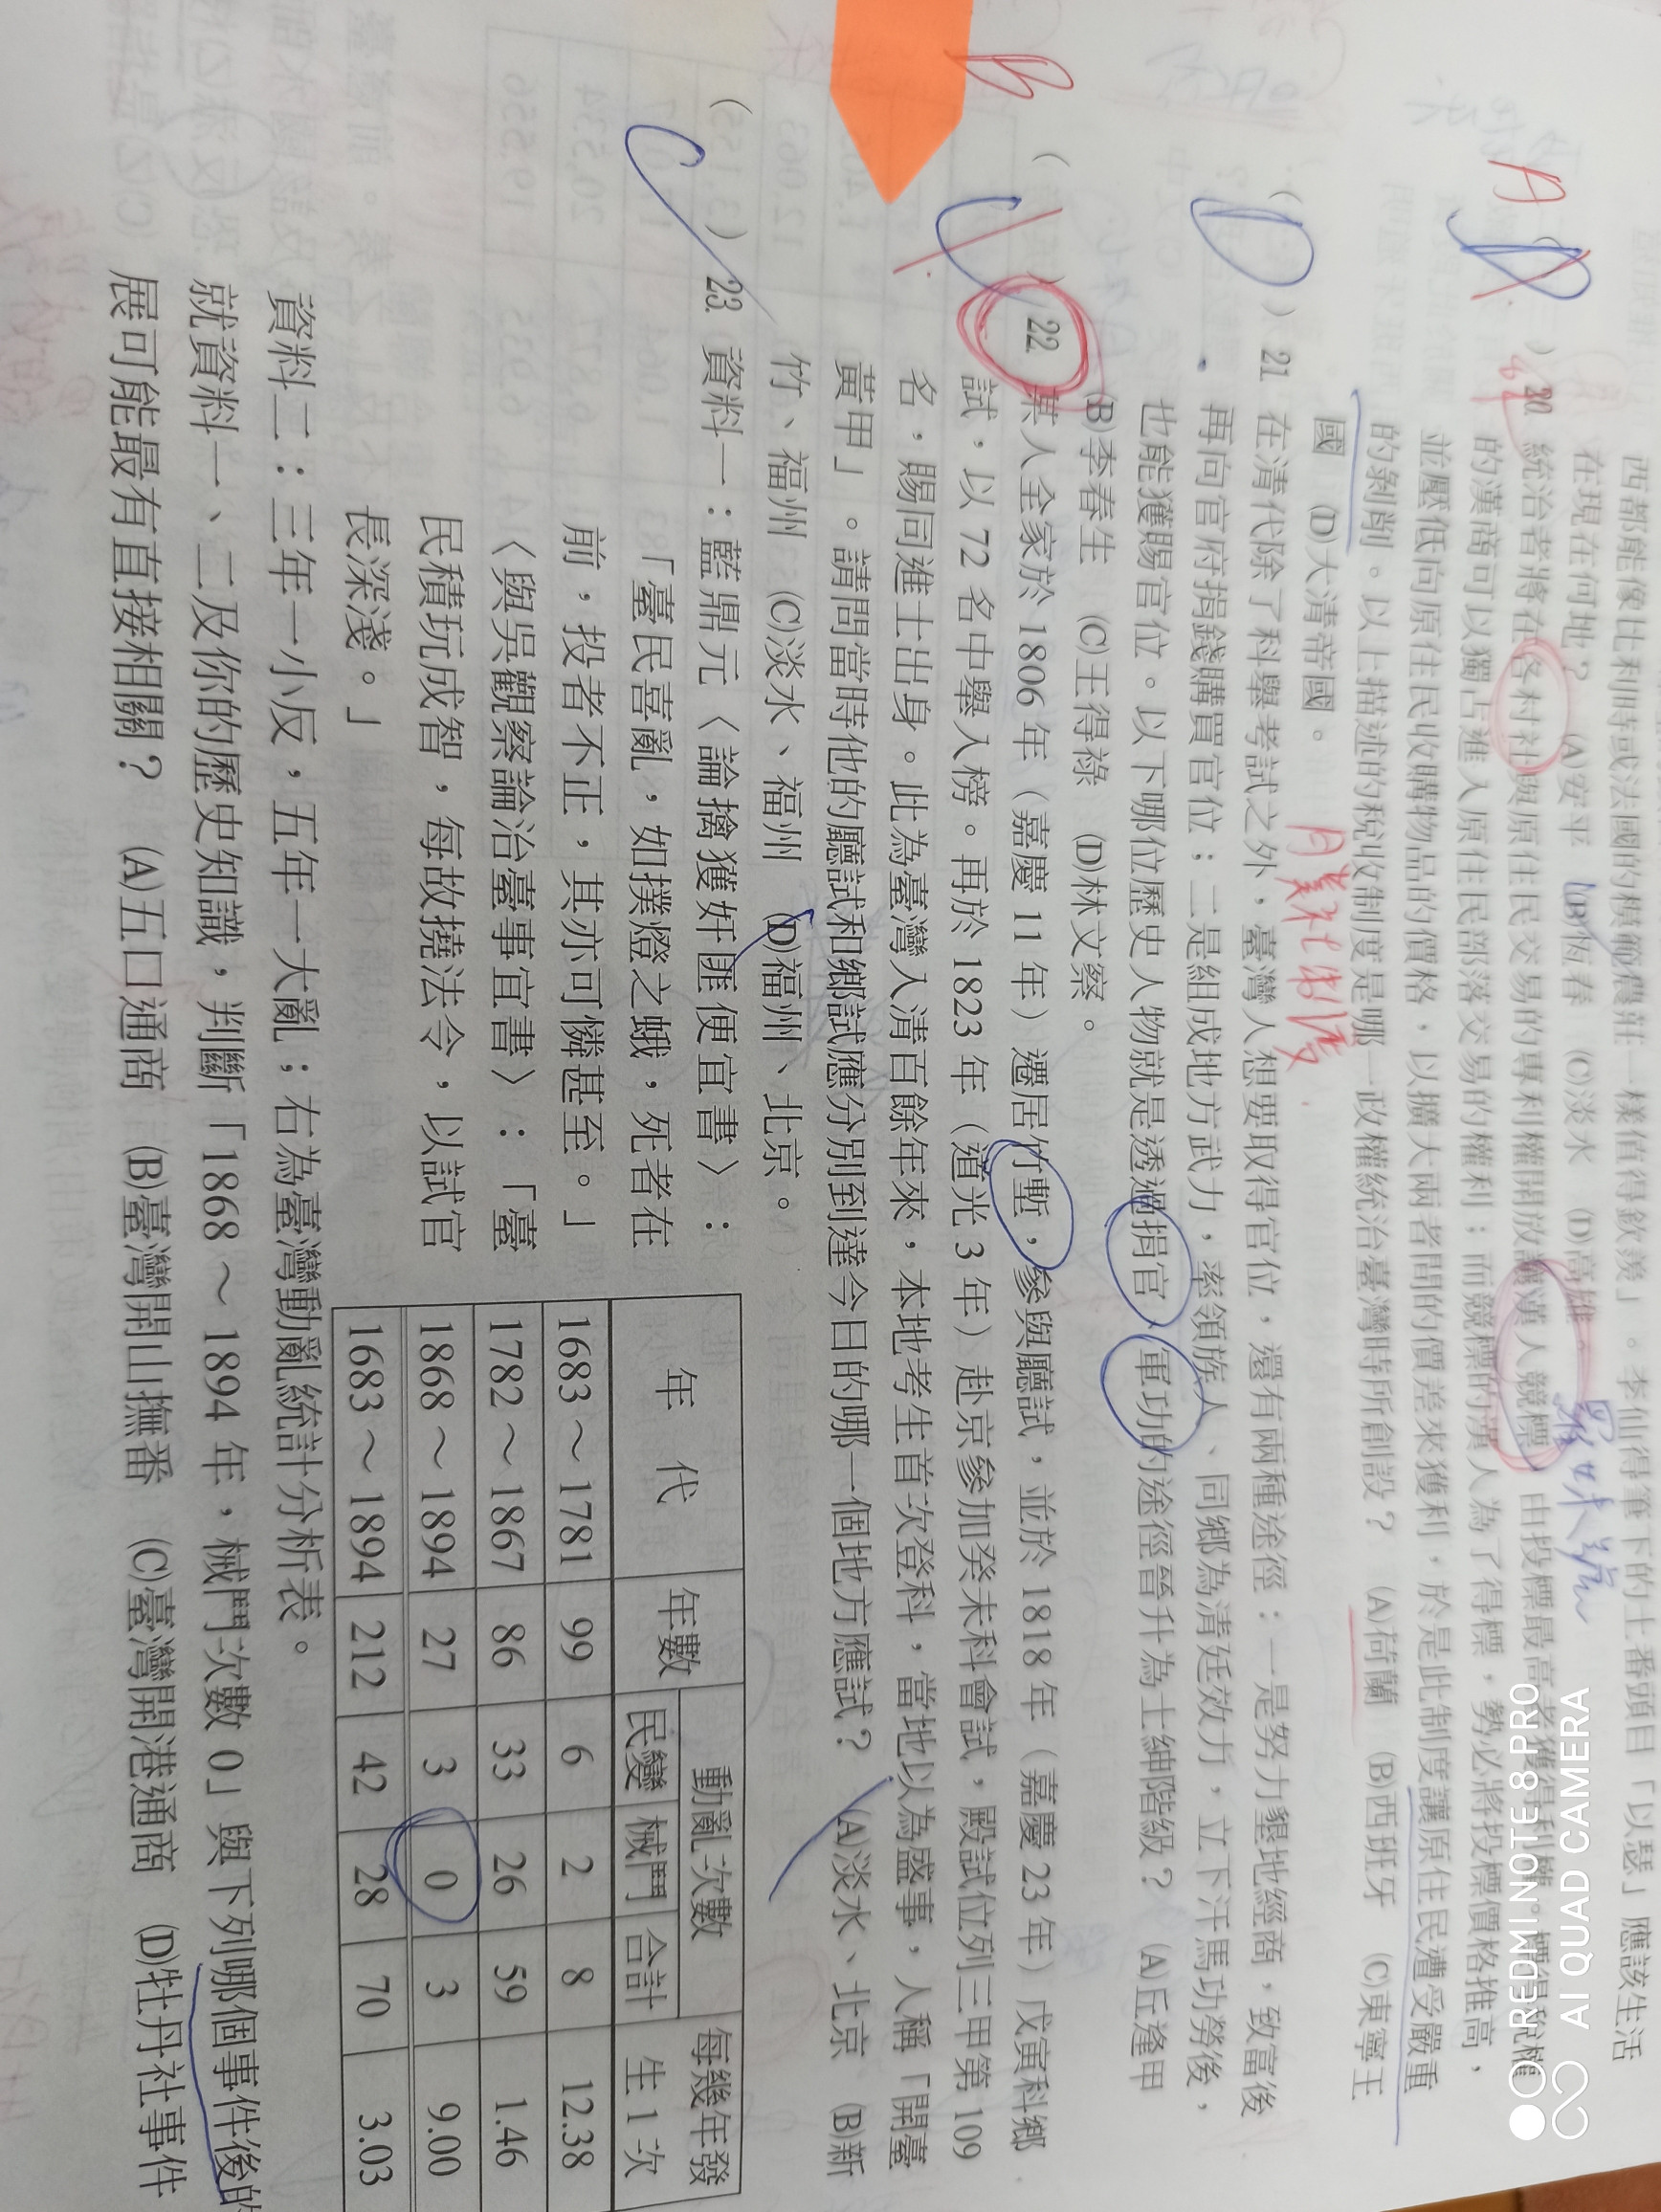 西都能像比利時或法國的模範農莊一樣值得欽羨」。李仙得筆下的土番頭目「以瑟」應該生活
在現在何地? (A)安平 (B)恆春 (C)淡水 (D)高雄
A
( )20. 統治者將在各村社與原住民交易的專利權開放讓漢人競標,由投標最高者獲得利權。標得稅權
的漢商可以獨占進入原住民部落交易的權利;而競標的漢人為了得標,勢必將投標價格推高,
並壓低向原住民收購物品的價格,以擴大兩者間的價差來獲利,於是此制度讓原住民遭受嚴重
的剝削。以上描述的稅收制度是哪一政權統治臺灣時所創設? (A)荷蘭 (B)西班牙 (C)東寧王
國 (D)大清帝國。
D
( )21. 在清代除了科舉考試之外,臺灣人想要取得官位,還有兩種途徑:一是努力墾地經商,致富後
再向官府捐錢購買官位;二是組成地方武力,率領族人、同鄉為清廷效力,立下汗馬功勞後,
也能獲賜官位。以下哪位歷史人物就是透過捐官、軍功的途徑晉升為士紳階級? (A)丘逢甲
(B)李春生 (C)王得祿 (D)林文察。
B C
( )22. 某人全家於 1806 年(嘉慶 11 年)遷居竹塹,參與廳試,並於 1818 年(嘉慶 23 年)戊寅科鄉
試,以 72 名中舉入榜。再於 1823 年(道光 3 年)赴京參加癸未科會試,殿試位列三甲第 109
名,賜同進士出身。此為臺灣入清百餘年來,本地考生首次登科,當地以為盛事,人稱「開臺
黃甲」。請問當時他的廳試和鄉試應分別到達今日的哪一個地方應試? (A)淡水、北京 (B)新
竹、福州 (C)淡水、福州 (D)福州、北京。
C
( )23. 資料一:藍鼎元〈論擒獲奸匪便宜書〉:
「臺民喜亂,如撲燈之蛾,死者在
前,投者不止,其亦可憐甚至。」
〈與吳觀察論治臺事宜書〉:「臺
民積玩成智,每故撓法令,以試官
長深淺。」
年 代 年數 動亂次數 每幾年發生 1 次
民變 械鬥 合計
1683～1781 99 6 2 8 12.38
1782～1867 86 33 26 59 1.46
1868～1894 27 3 0 3 9.00
1683～1894 212 42 28 70 3.03
資料二:三年一小反,五年一大亂;右為臺灣動亂統計分析表。
就資料一、二及你的歷史知識,判斷「1868～1894 年,械鬥次數 0」與下列哪個事件後的
展可能最有直接相關? (A)五口通商 (B)臺灣開山撫番 (C)臺灣開港通商 (D)牡丹社事件
REDMI NOTE 8 PRO
AI QUAD CAMERA